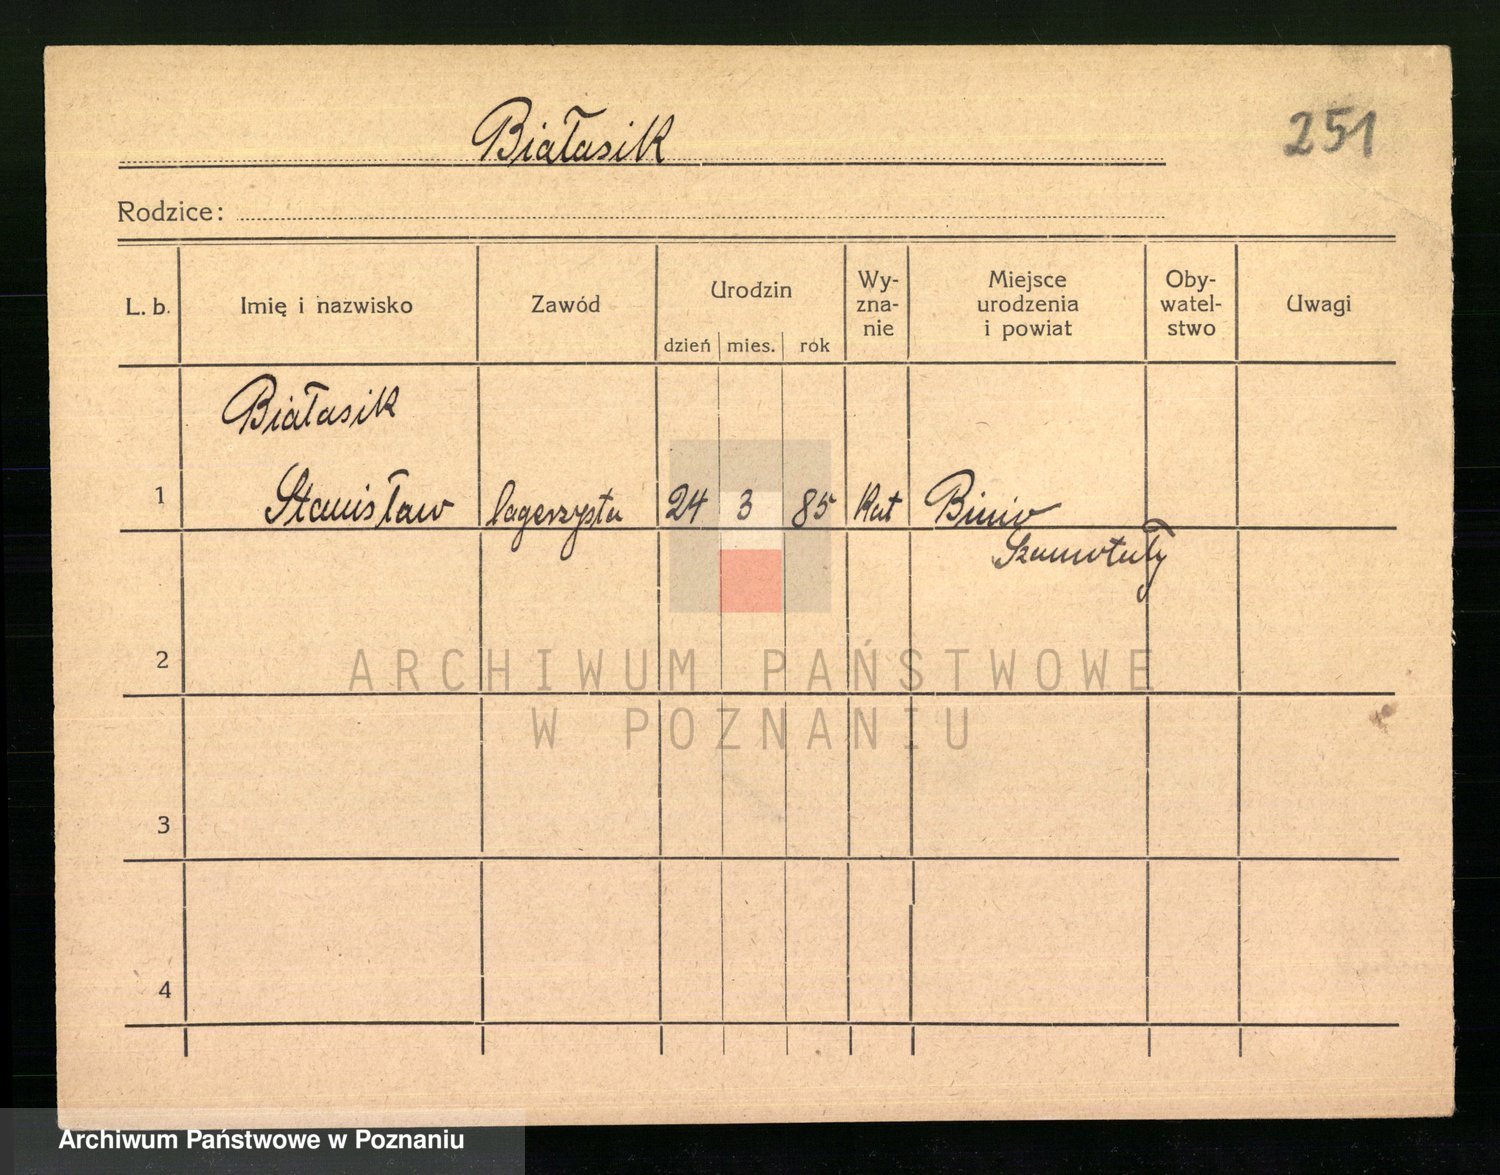 Białasik
251
Rodzice:
L. b. Imię i nazwisko Zawód Urodzin dzień mies. rok Wy-zna-nie Miejsce urodzenia i powiat Oby-watel-stwo Uwagi
Białasik
1 Stanisław lagerzysta 24 3 85 Kat Binino
Szamotuły
2
ARCHIWUM PAŃSTWOWE
W POZNANIU
3
4
Archiwum Państwowe w Poznaniu